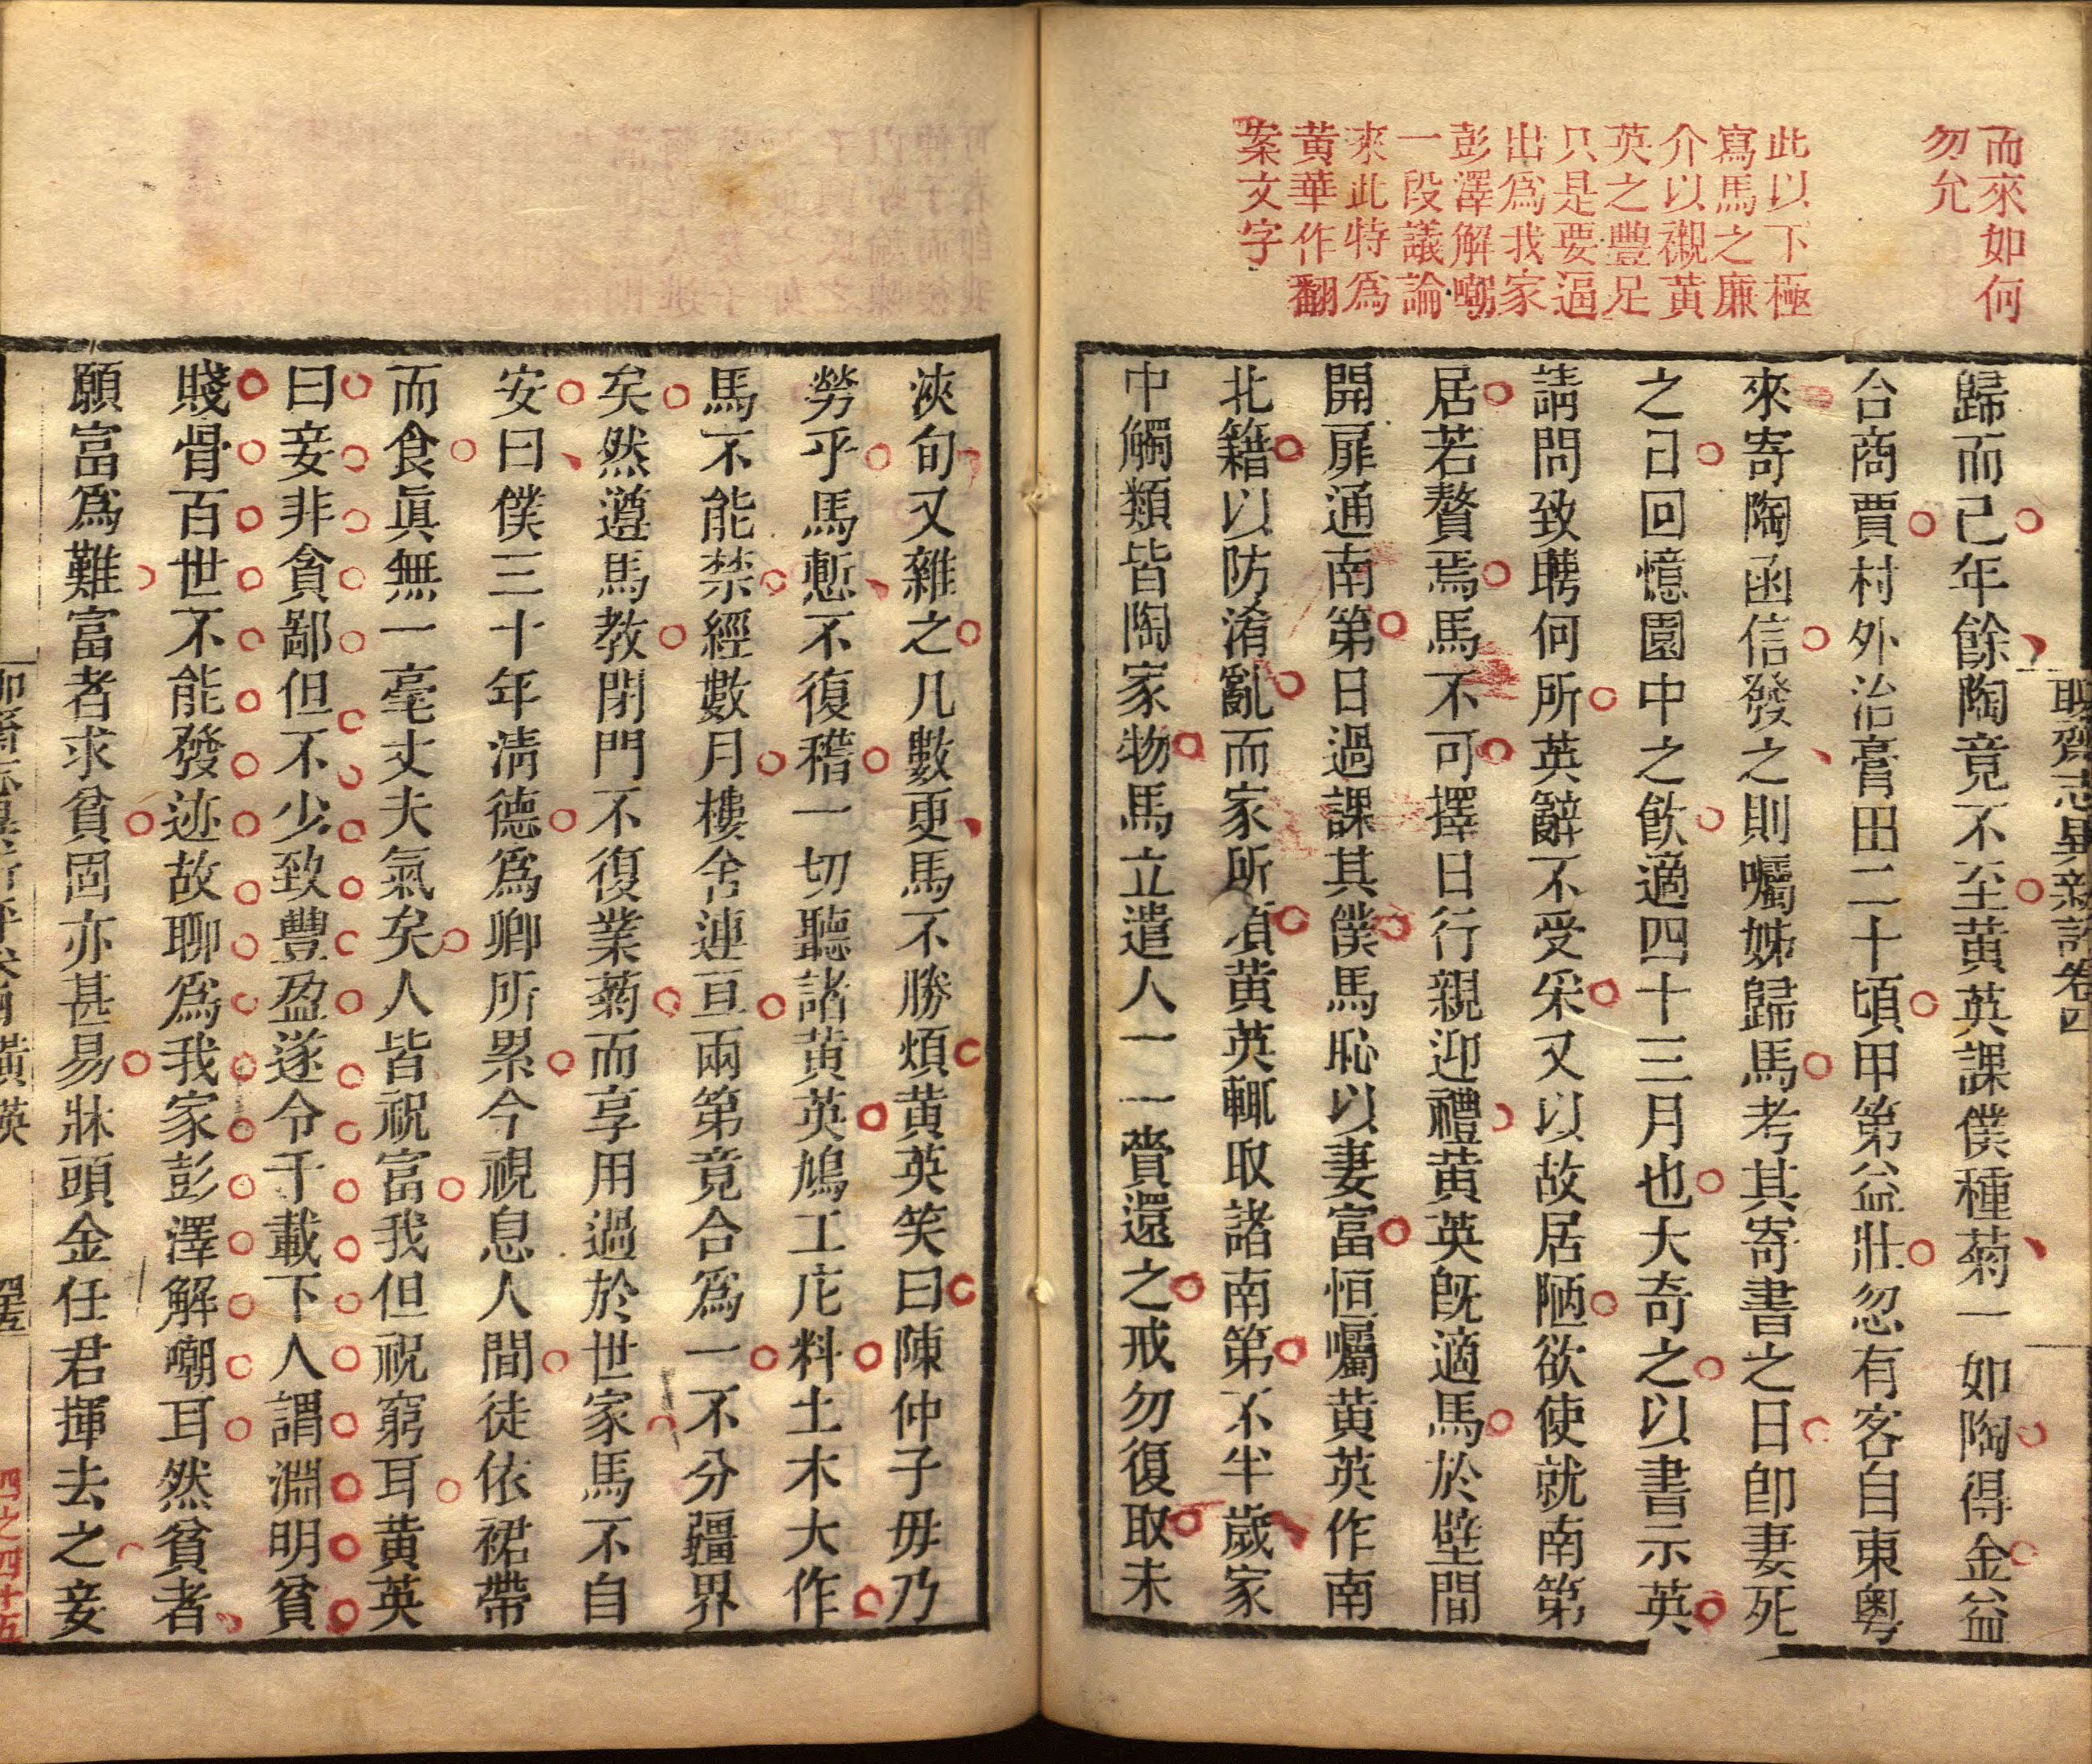 而來如何
勿允
此以下極
寫馬之廉
介以襯黃
英之豐足
只是要逼
出爲我家
彭澤解嘲
一段議論
來此特爲
黃華作翻
案文字
聊齋志異新評卷四
歸而已年餘陶竟不至黃英課僕種菊一如陶得金益
合商賈村外治膏田二十頃甲第益壯忽有客自東粵
來寄陶函信發之則囑姊歸馬考其寄書之日卽妻死
之日回憶園中之飮適四十三月也大奇之以書示英
請問致聘何所英辭不受采又以故居陋欲使就南第
居若贅焉馬不可擇日行親迎禮黃英旣適馬於壁間
開扉通南第日過課其僕馬恥以妻富恒囑黃英作南
北籍以防淆亂而家所須黃英輒取諸南第不半歲家
中觸類皆陶家物馬立遣人一一賫還之戒勿復取未
浹旬又雜之凡數更馬不勝煩黃英笑曰陳仲子毋乃
勞乎馬慙不復稽一切聽諸黃英鳩工庀料土木大作
馬不能禁經數月樓舍連亘兩第竟合爲一不分疆界
矣然遵馬教閉門不復業菊而享用過於世家馬不自
安曰僕三十年淸德爲卿所累今視息人間徒依裙帶
而食眞無一毫丈夫氣矣人皆祝富我但祝窮耳黃英
曰妾非貪鄙但不少致豐盈遂令千載下人謂淵明貧
賤骨百世不能發迹故聊爲我家彭澤解嘲耳然貧者
願富爲難富者求貧固亦甚易牀頭金任君揮去之妾
黃英
四之四十五